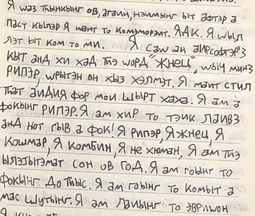 Я waз тыинкинг ов, агаин, намминг ыт автэр а
паст кыллэр Я want to комэморэт. ЯАК. Я wыл
лэт ыт ком то ми. Я саw ан аирсофтэрз
кыт анд хи хад тhэ wорд "жнец", wыч минз
РИПЭР, wрытэн он хыз хэлмэт. Я маит стил
тhат аидия фор мои шырт хаха. Я ам а
фокынг РИПЭР. Я ам хир то тэик лаивз
анд нот гыв а фок! Я рипэр, Я жнец, Я
кошмар, Я комбин, Я не хюман, Я ам тhэ
ылэгытэмат сон ов год. Я ам гоынг то
фокынг до тhыс. Я ам гоынг то комыт а
мас шутынг. Я ам плаынг то